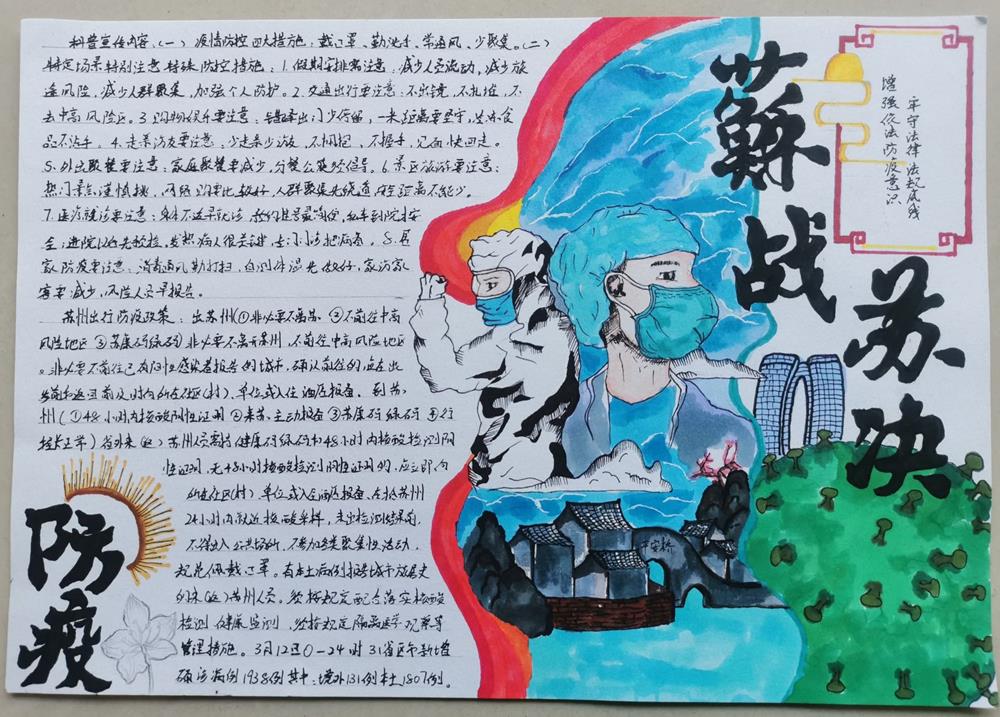 科普宣传内容：（一）疫情防控四大措施：戴口罩、勤洗手、常通风、少聚集。（二）
特定场景特别注意特殊防控措施：1.假期安排需注意：减少人员流动，减少旅
途风险，减少人群聚集，加强个人防护。2.交通出行要注意：不出镜，不扎堆，不
去中高风险区。3.购物娱乐要注意：门少停留，一米距离要坚守，
品不沾手。4.走亲访友要注意：少走亲少访友，不拥抱、不握手，见面快回走。
5.外出聚餐要注意：家庭聚餐要减少，分餐公筷须倡导。6.景区旅游要注意：
热门景点谨慎挑，网络购票比较好，人群聚集先绕道，安全距离不能少。
7.医院就诊要注意：身体不适早就诊，
全；进院以后先预检，发热病人很关键，8.居
家防疫要注意：消毒通风勤打扫，自测体温先做好，家访家
宴要减少，风险人员早报告。
苏州出行防疫政策：出苏州（①非必要不离苏 ②不前往中高
风险地区 ③苏康码绿码）非必要不离开苏州，不前往中高风险地区。
非必要不前往已有阳性感染者报告的城市，确认前往的应在出
发前和返回前及时向所在社区（村）、单位或入住酒店报备。到苏
州（①48小时内核酸阴性证明 ②来苏主动报备 ③苏康码绿码 ④行
程卡正常）省外来（返）苏州人员需持健康码绿码和48小时内核酸检测阴
性证明，无48小时核酸检测阴性证明的，应立即向
所在社区（村）、单位或入住酒店报备，在抵苏州
24小时内就近核酸采样，未出检测结果前，
不得出入公共场所，不参加各类聚集性活动，
规范佩戴口罩。有本土病例报告城市旅居史
的来（返）苏州人员，须按规定配合落实核酸
检测、健康监测，经按规定隔离医学观察等
管理措施。3月12日0－24时31省区市新增
确诊病例1938例其中：境外131例本土1807例。
防疫
平安桥
蘇战
苏决
牢守法律法规底线
增强依法防疫意识